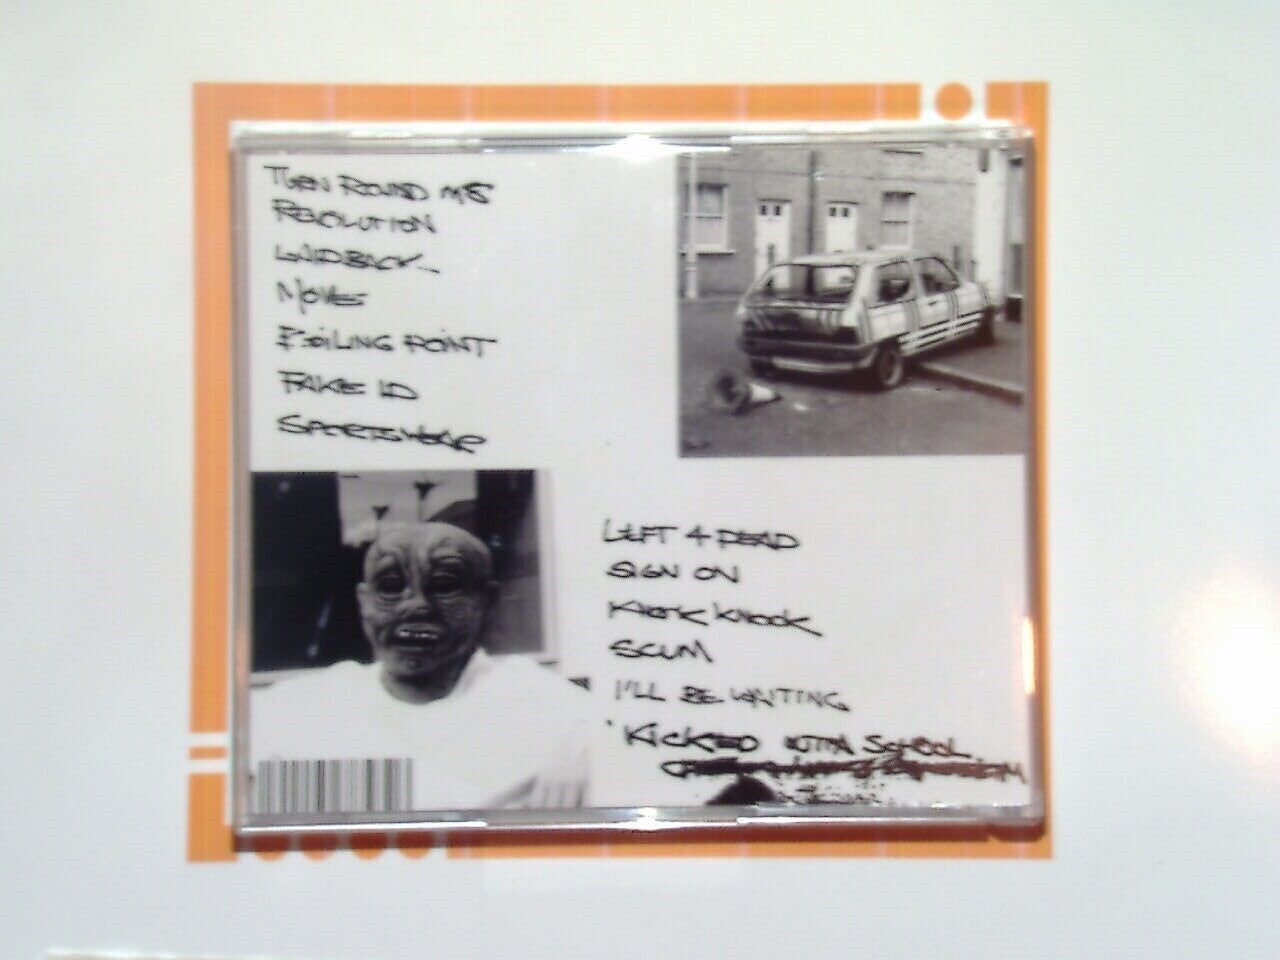 TURN ROUND M8
REVOLUTION
LAIDBACK...
MOVE
BOILING POINT
FAKE ID
SPORTSWEAR
LEFT 4 DEAD
SIGN ON
KNOCK KNOCK
SCUM
I'LL BE WAITING
KICKED OUTTA SCHOOL